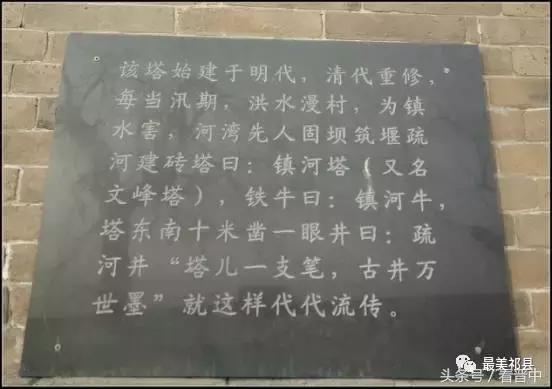 该塔始建于明代，清代重修，
每当汛期，洪水漫村，为镇
水害，河湾先人固坝筑堰疏
河建砖塔曰：镇河塔（又名
文峰塔），铁牛曰：镇河牛，
塔东南十米凿一眼井曰：疏
河井“塔儿一支笔，古井万
世墨”就这样代代流传。
最美祁县
头条号/看晋中